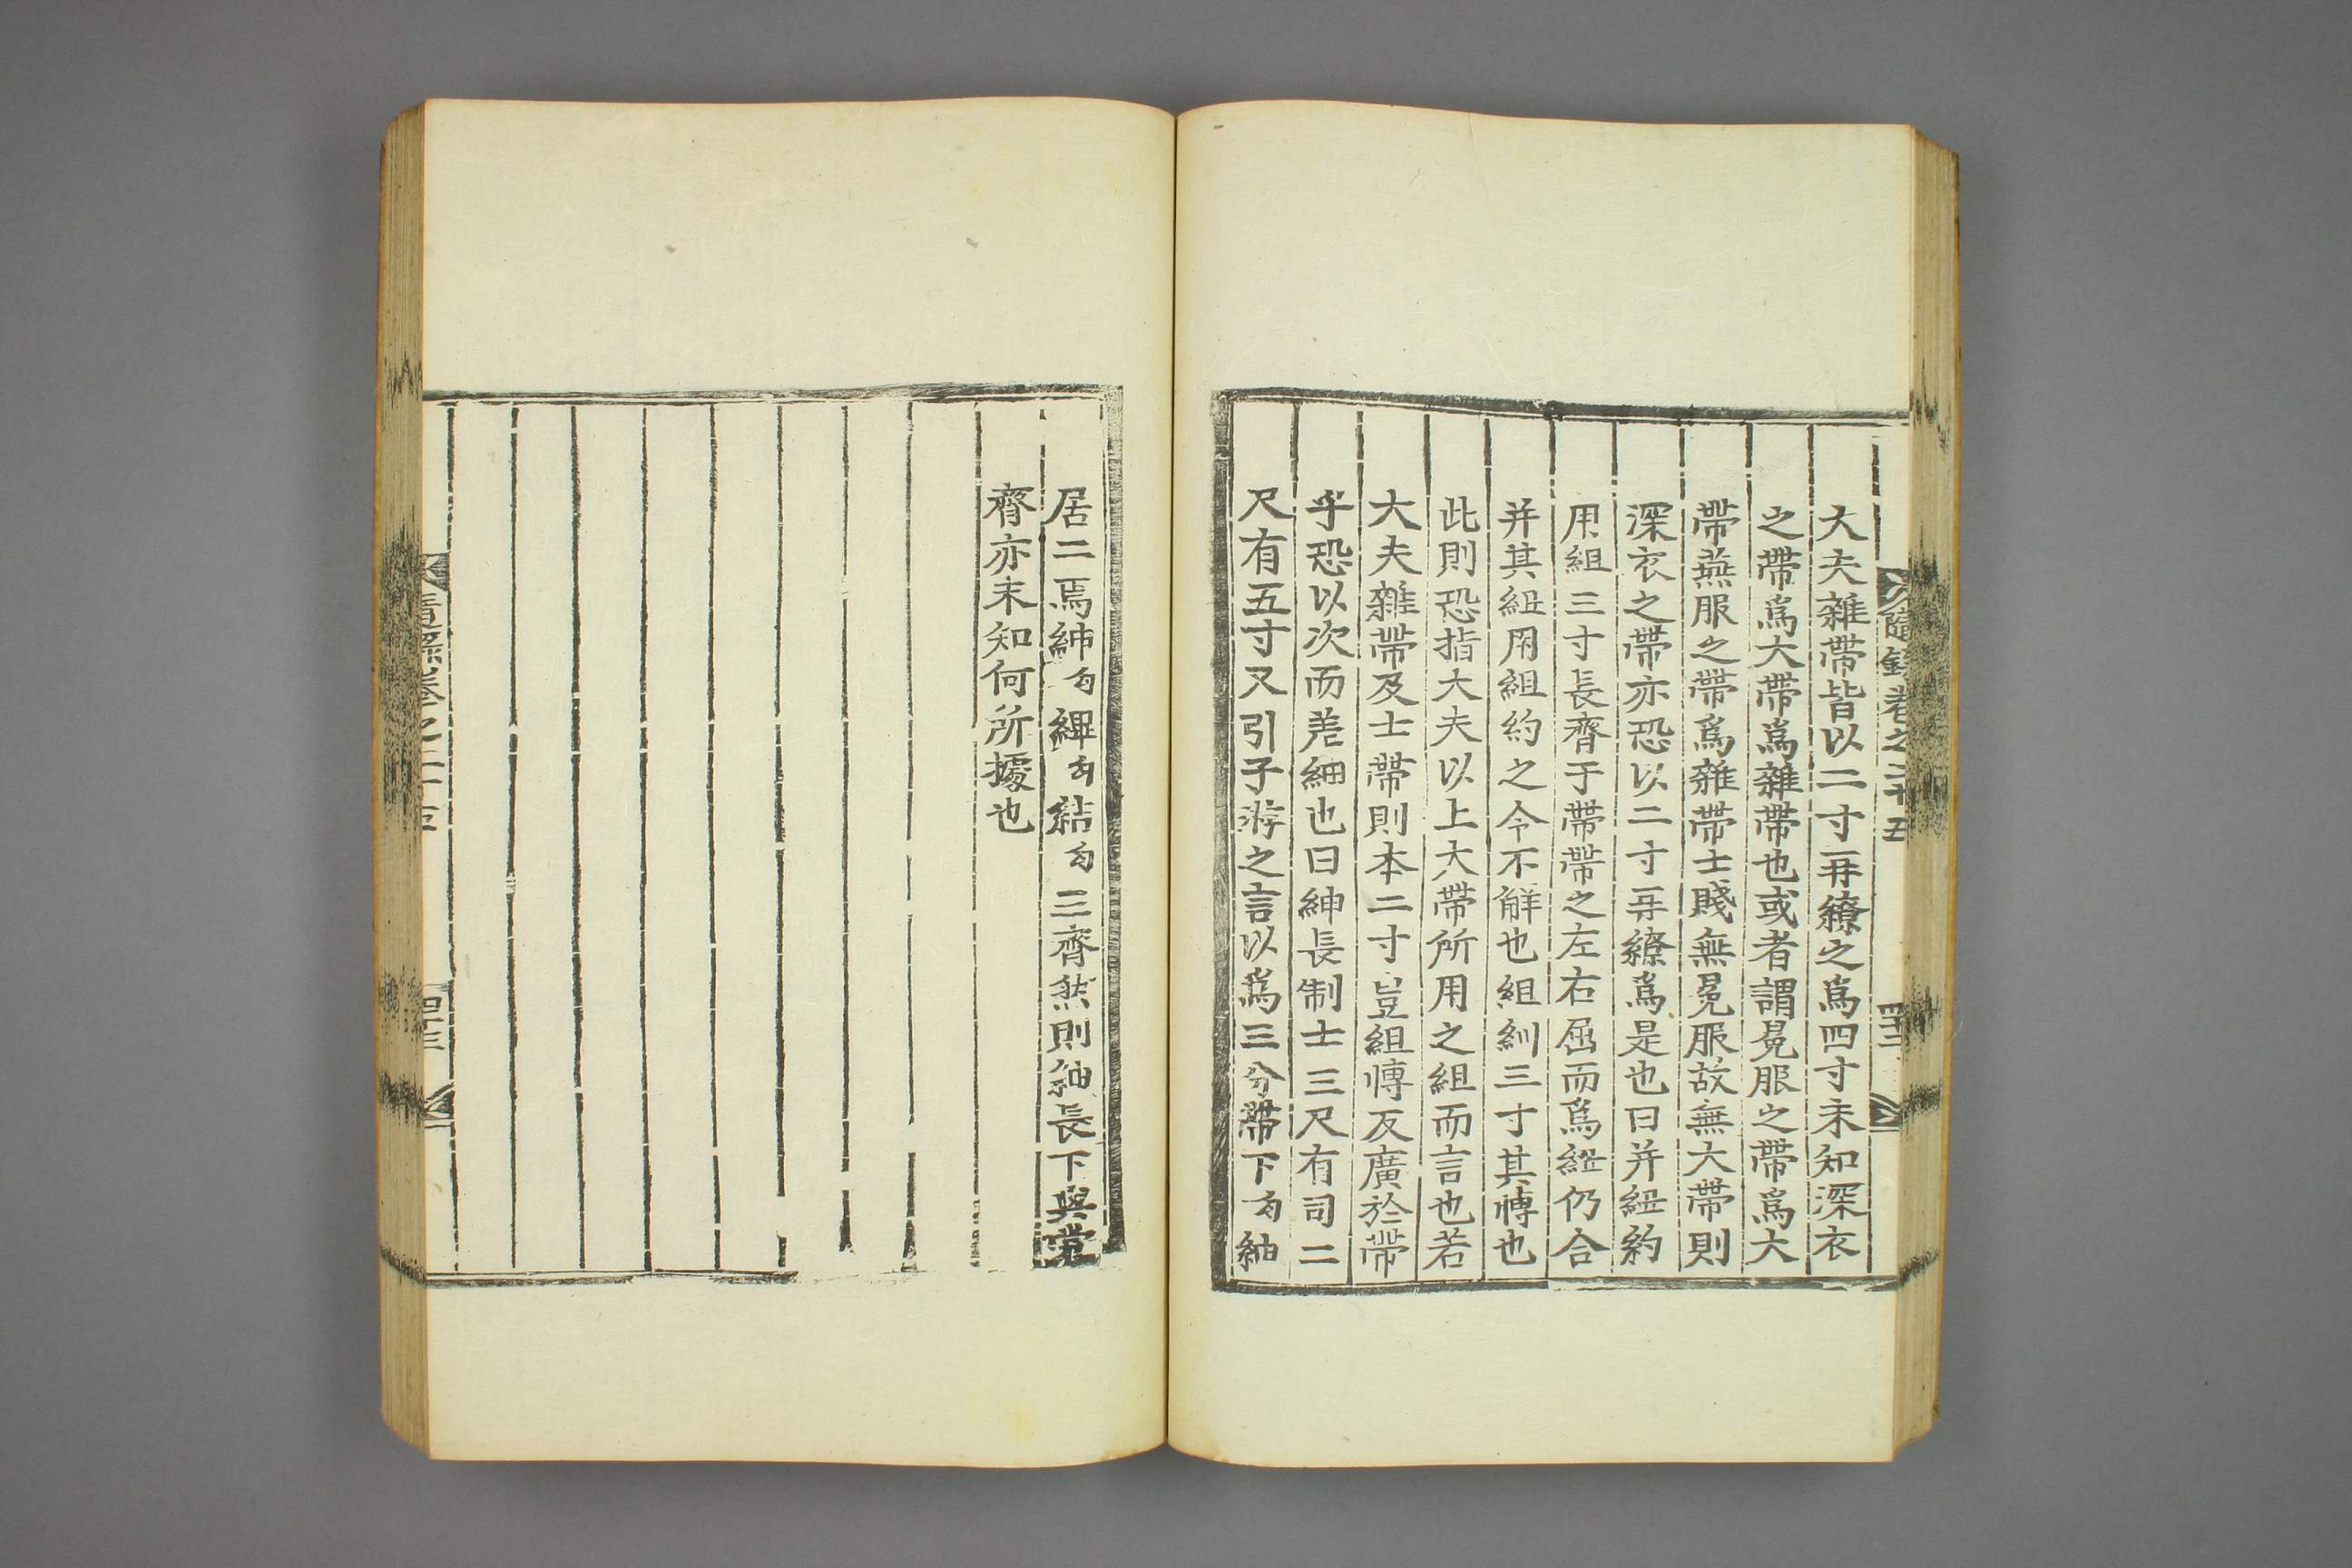 隨錄卷之二十五
四十二
大夫雜帶皆以二寸再繚之爲四寸未知深衣
之帶爲大帶爲雜帶也或者謂冕服之帶爲大
帶燕服之帶爲雜帶士賤無冕服故無大帶則
深衣之帶亦恐以二寸再繚爲是也曰并紐約
用組三寸長齊于帶帶之左右屈而爲紐仍合
并其紐用組約之令不解也組紃三寸其慱也
此則恐指大夫以上大帶所用之組而言也若
大夫雜帶及士帶則本二寸豈組慱反廣於帶
乎恐以次而差細也曰紳長制士三尺有司二
尺有五寸又引子游之言以爲三分帶下勾紳
居二焉紳勾縪勾結勾三齊然則紳長下與裳
齊亦未知何所據也
隨錄卷之二十五
四十三